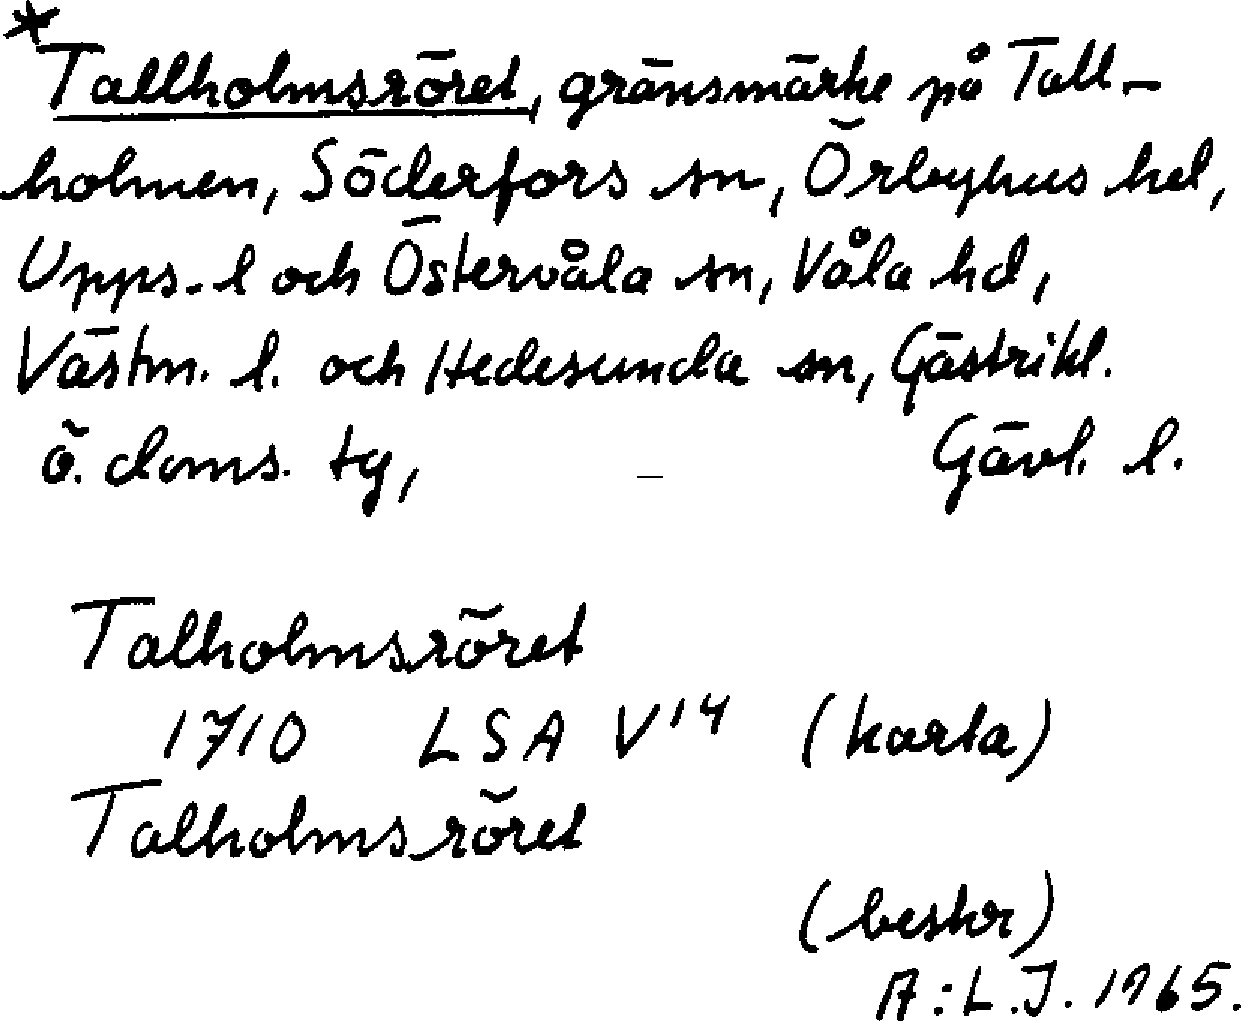 *Tallholmsröret, gränsmärke på Tall-
holmen, Söderfors sn, Örbyhus hd,
Upps. l och Östervåla sn, Våla hd,
Västm. l. och Hedesunda sn, Gästrikl.
ö. doms. tg, - Gävl. l.
Talholmsröret
1710 LSA V14 (karta)
Talholmsröret
(beskr)
A:L.J. 1965.